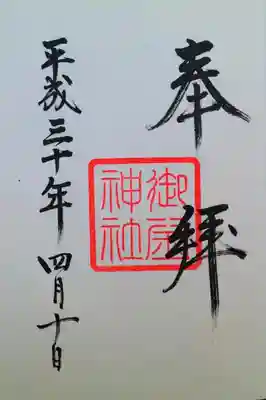 奉拜
御
神社
平成三十年 四月十日